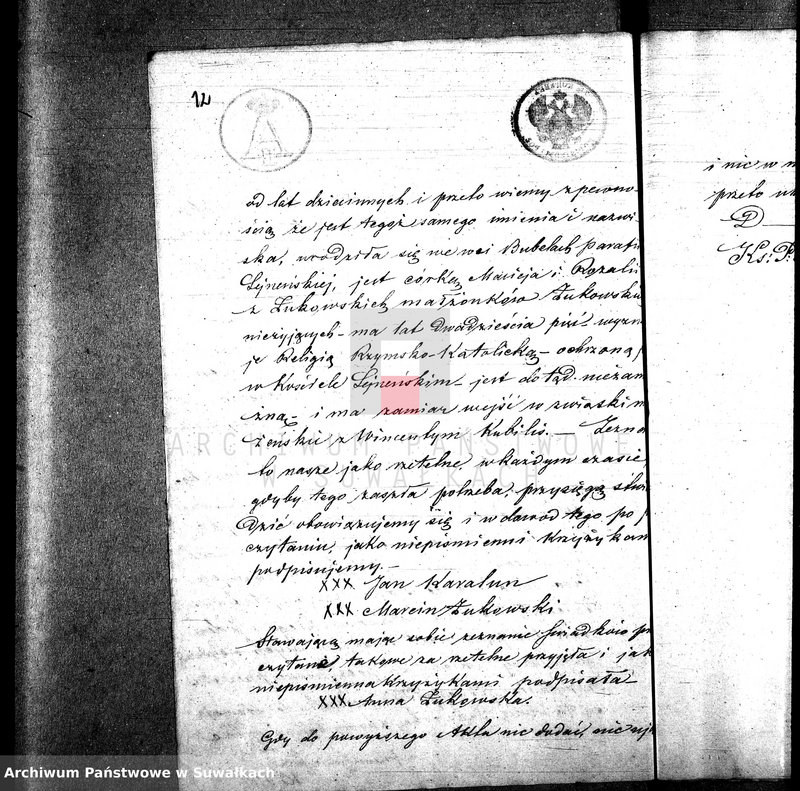 12
od lat dziecinnych i przeto wiemy z pewno-
ścią że jest tegoż samego imienia i nazwi
ska, urodziła się we wsi Bubelach parafii
Sejneńskiej, jest córką Macieja i Rozalii
z Żukowskich małżonków Żukowskich
nieżyjących – ma lat dwadzieścia pięć – wyzna
je Religią Rzymsko-Katolicką – ochrzconą
w Kościele Sejneńskim – jest dotąd nieza
żną – i ma zamiar wejść w związki
żeńskie z Wincentym Kubilis. – Zezna
to nasze jako rzetelne, w każdym czasie,
gdyby tego zaszła potrzeba, przysięgą stwier
dzić obowiązujemy się i w dowód tego po
czytaniu, jako niepiśmienni krzyżykam
podpisujemy. –
XXX Jan Karalun
XXX Marcin Żukowski
Stawająca mając sobie zeznanie świadków
czytane, takowe za rzetelne przyjęła i jak
niepiśmienna krzyżykami podpisała –
XXX Anna Żukowska.
Gdy do powyższego Akta nic dodać, nic
i nic w
przeto
D
Ks: P:
ARCHIWUM PAŃSTWOWE
W SUWAŁKACH
Archiwum Państwowe w Suwałkach